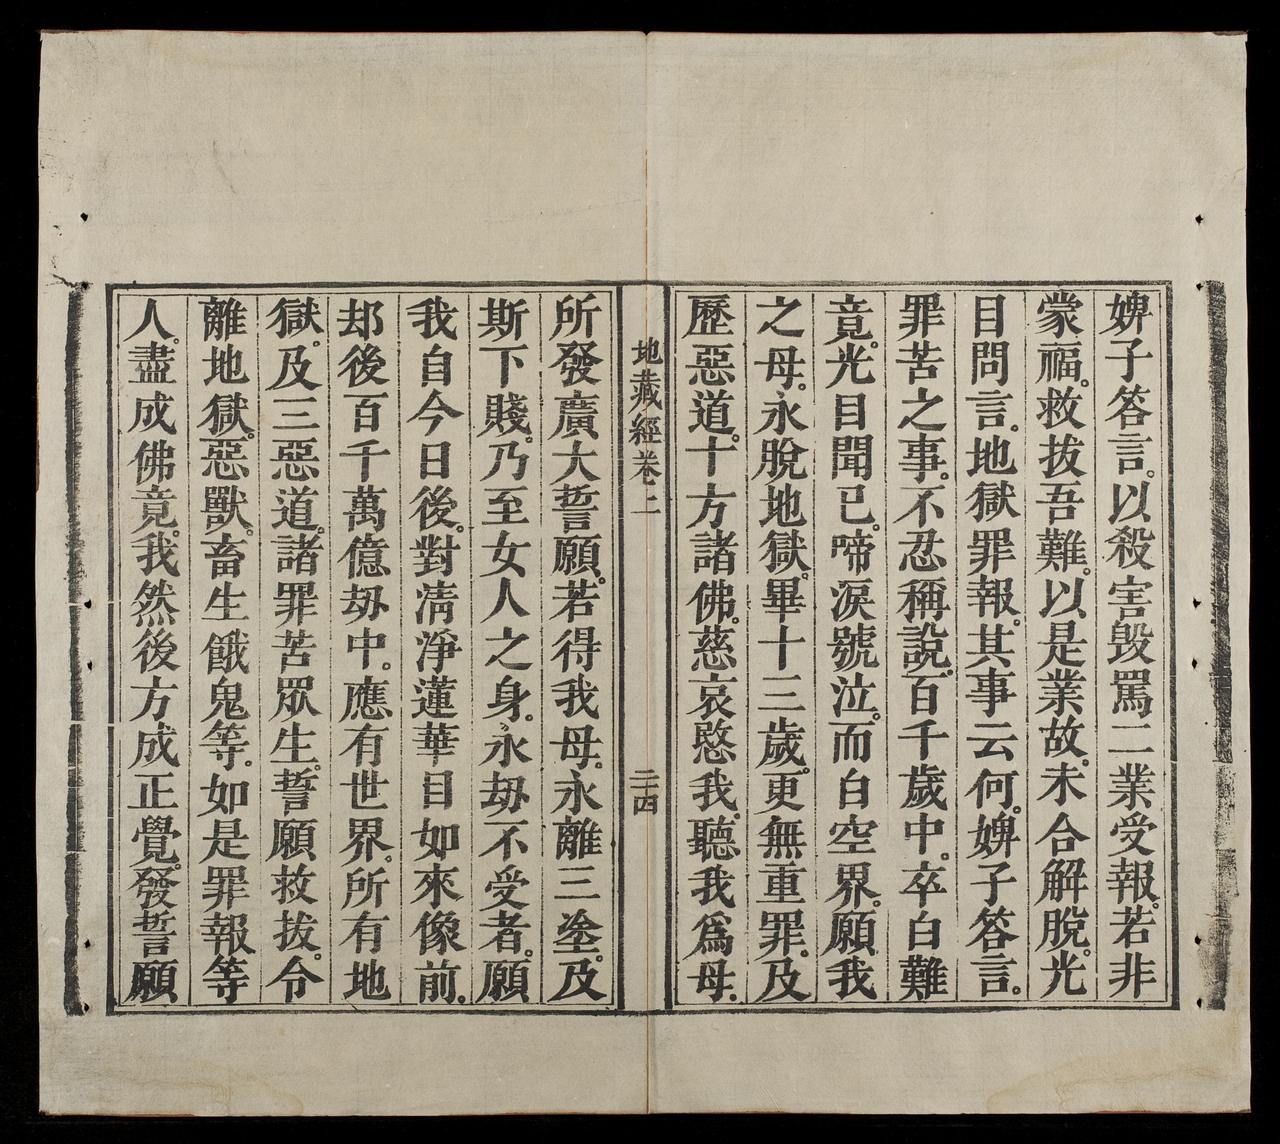 婢子答言。以殺害毀罵二業受報。若非
蒙福。救拔吾難。以是業故。未合解脫。光
目問言。地獄罪報。其事云何。婢子答言。
罪苦之事。不忍稱說。百千歲中。卒白難
竟。光目聞已。啼淚號泣。而白空界。願我
之母。永脫地獄。畢十三歲。更無重罪。及
歷惡道。十方諸佛。慈哀愍我。聽我爲母。
地藏經卷上
二十四
所發廣大誓願。若得我母。永離三塗。及
斯下賤。乃至女人之身。永劫不受者。願
我自今日後。對清淨蓮華目如來像前。
却後百千萬億劫中。應有世界。所有地
獄。及三惡道。諸罪苦眾生。誓願救拔。令
離地獄。惡獸。畜生餓鬼等。如是罪報等
人。盡成佛竟。我然後方成正覺。發誓願